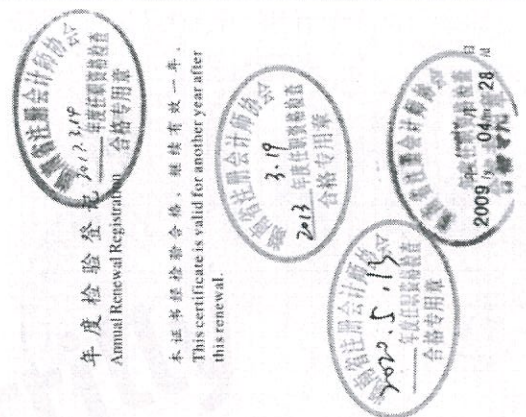 年度检验登记
Annual Renewal Registration
本证书经检验合格，继续有效一年。
This certificate is valid for another year after
this renewal.
省注册会计师协会
3.19
年度任职资格检查
合格专用章
省注册会计师协会
3.19
2013 年度任职资格检查
合格专用章
省注册会计师协会
2020.5.13
年度任职资格检查
合格专用章
省注册会计师协会
年度任职资格检查
2009 /y 04 /m 28 日
/d